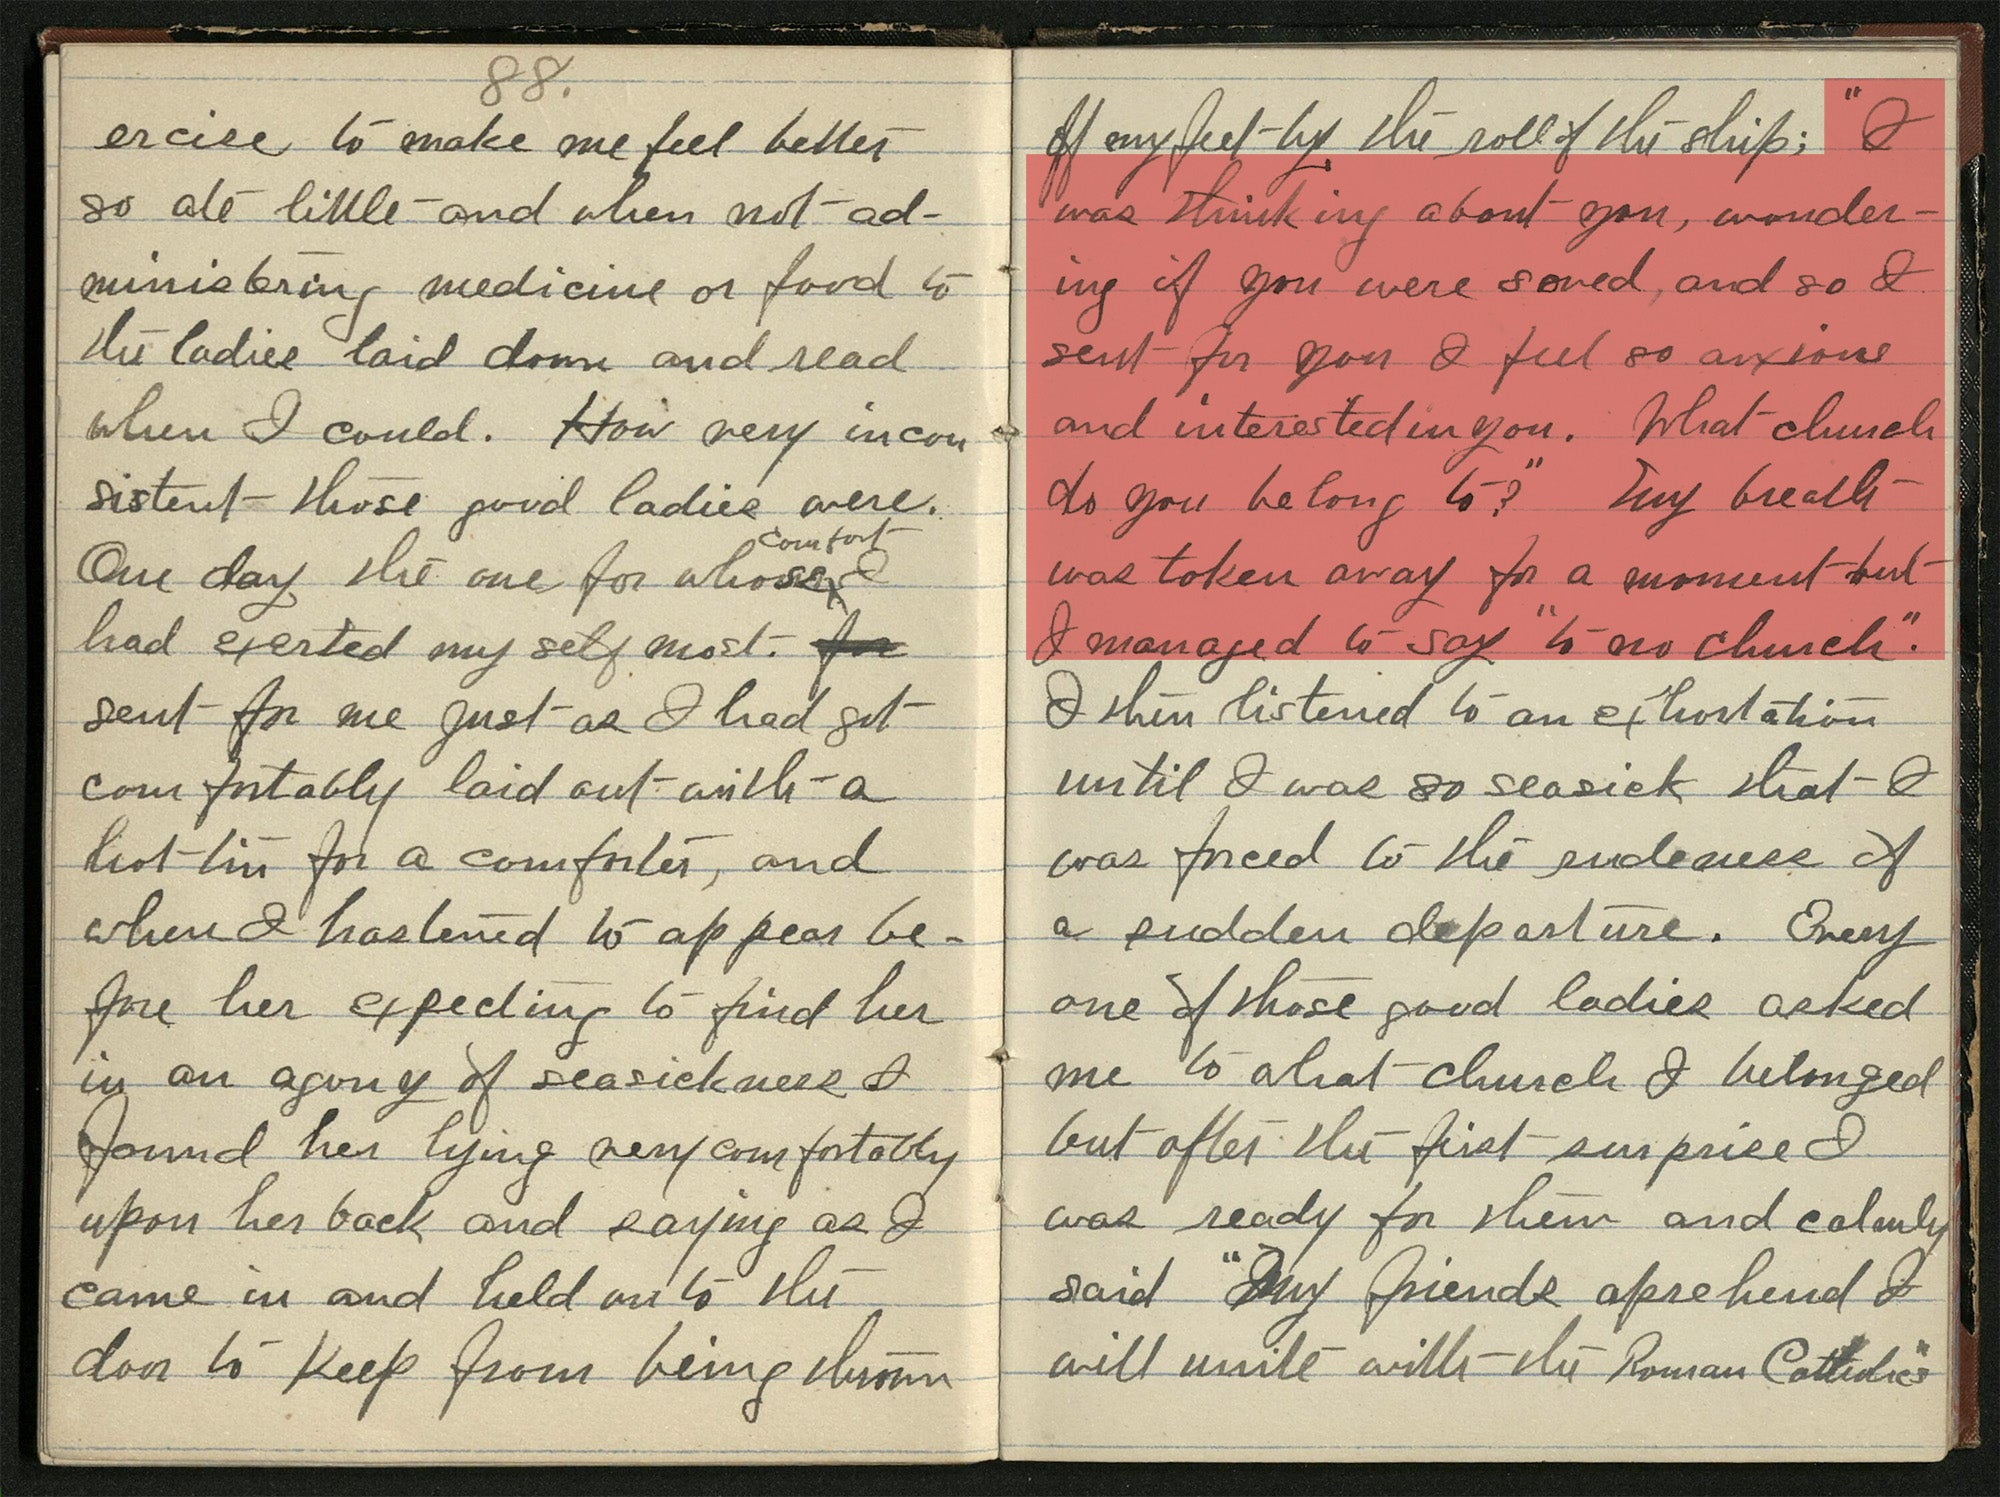 88.
ercise to make me feel better
so ate little and when not ad-
ministering medicine or food to
the ladies laid down and read
when I could. How very incon
sistent those good ladies were.
comfort
One day the one for whose I
had exerted my self most. for
sent for me just as I had got
comfortably laid out with a
hot tin for a comforter, and
when I hastened to appear be-
fore her expecting to find her
in an agony of seasickness I
found her lying very comfortably
upon her back and saying as I
came in and held on to the
door to keep from being thrown
off my feet by the roll of the ship; "I
was thinking about you, wonder-
ing if you were saved, and so I
sent for you I feel so anxious
and interested in you. What church
do you belong to?" My breath
was taken away for a moment but
I managed to say "to no church".
I then listened to an exhortation
until I was so seasick that I
was forced to the rudeness of
a sudden departure. Every
one of those good ladies asked
me to what church I belonged
but after the first surprise I
was ready for them and calmly
said "My friends aprehend I
will unite with the Roman Catholics"